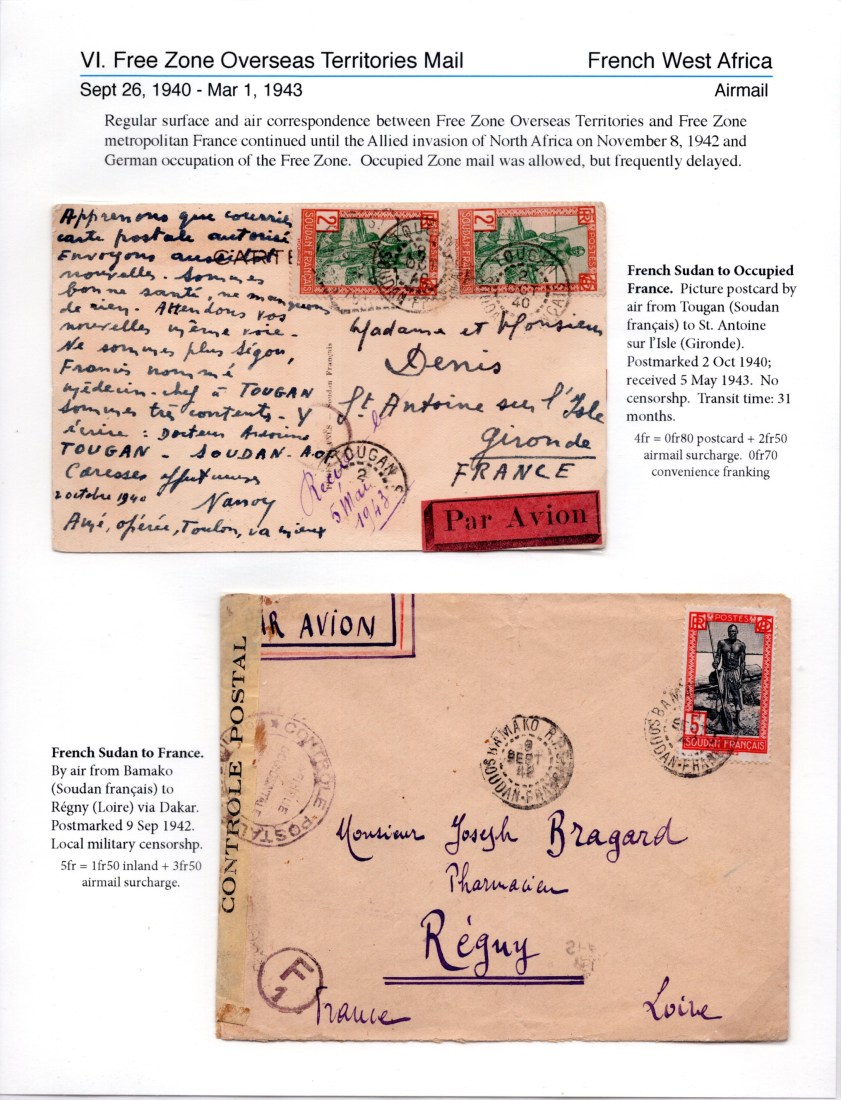 VI. Free Zone Overseas Territories Mail
French West Africa
Sept 26, 1940 - Mar 1, 1943
Airmail
Regular surface and air correspondence between Free Zone Overseas Territories and Free Zone
metropolitan France continued until the Allied invasion of North Africa on November 8, 1942 and
German occupation of the Free Zone. Occupied Zone mail was allowed, but frequently delayed.
Apprenons que courrier
carte postale autorisé
CARTE
Envoyons aussitôt
nouvelles. Sommes
bonne santé, ne manquons
de rien. Attendons vos
nouvelles même voie.
Ne sommes plus Ségou,
Francis nommé
médecin-chef à TOUGAN
Sommes très contents. Y
écrire : Docteur
TOUGAN - SOUDAN. AOF
Caresses affectueuses
2 octobre 1940 Nanoy
opérée, Toulon, va mieux
2F
SOUDAN FRANÇAIS
RF
POSTES
2F
SOUDAN FRANÇAIS
RF
POSTES
TOUGAN
2
40
Madame et Monsieur
Denis
St Antoine sur l'Isle
Gironde
FRANCE
Soudan Français
TOUGAN
2
Reçue le
5 Mai
1943
Par Avion
French Sudan to Occupied
France. Picture postcard by
air from Tougan (Soudan
français) to St. Antoine
sur l'Isle (Gironde).
Postmarked 2 Oct 1940;
received 5 May 1943. No
censorshp. Transit time: 31
months.
4fr = 0fr80 postcard + 2fr50
airmail surcharge. 0fr70
convenience franking
French Sudan to France.
By air from Bamako
(Soudan français) to
Régny (Loire) via Dakar.
Postmarked 9 Sep 1942.
Local military censorshp.
5fr = 1fr50 inland + 3fr50
airmail surcharge.
AR AVION
CONTROLE POSTAL
CONTROLE POSTAL
BAMAKO R.P.
9
SEPT
42
SOUDAN-FRANÇAIS
RF
POSTES
5F
SOUDAN FRANÇAIS
BAMA
SOUDAN-FRAN
Monsieur Joseph Bragard
Pharmacien
Régny
F
1
France
Loire